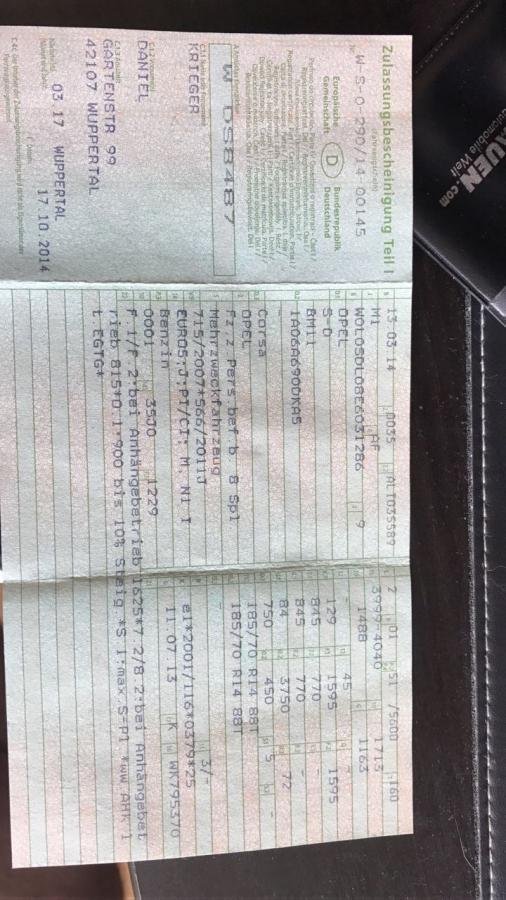 Zulassungsbescheinigung Teil I
W-S-0-290/14-00145
Europäische Gemeinschaft
D
Bundesrepublik Deutschland
W DS8487
KRIEGER
DANIEL
GARTENSTR 99
42107 WUPPERTAL
03 17 WUPPERTAL
17.10.2014
13.03.14 0035 ALT035589
M1 AF
W0L0SDL08E6031286 9
OPEL
S-D
BM11
1A06A69O0KA5
-
Corsa
OPEL
Fz.z.Pers.bef.b. 8 Spl
Mehrzweckfahrzeug
715/2007*566/2011J
EURO5;J;PI/CI; M, N1 I
Benzin
0001 35J0 1229
2 01 51 /5600 160
3999-4040 1713
1488 1163
- 45 -
129 1595 1595
845 770 -
845 770 -
84 3750 72
750 450 5 -
185/70 R14 88T
185/70 R14 88T
-
3/-
e1*2001/116*0379*25
11.07.13 K WK795370
F.1/F.2:bei Anhängebetrieb 1625*7.2/8.2:bei Anhängebet
rieb 815*O.1:900 bis 10% Steig.*S.1:max.S=P1 *ww.AHK l
t.EGTG*
AUEN
Automobile Welt
.com